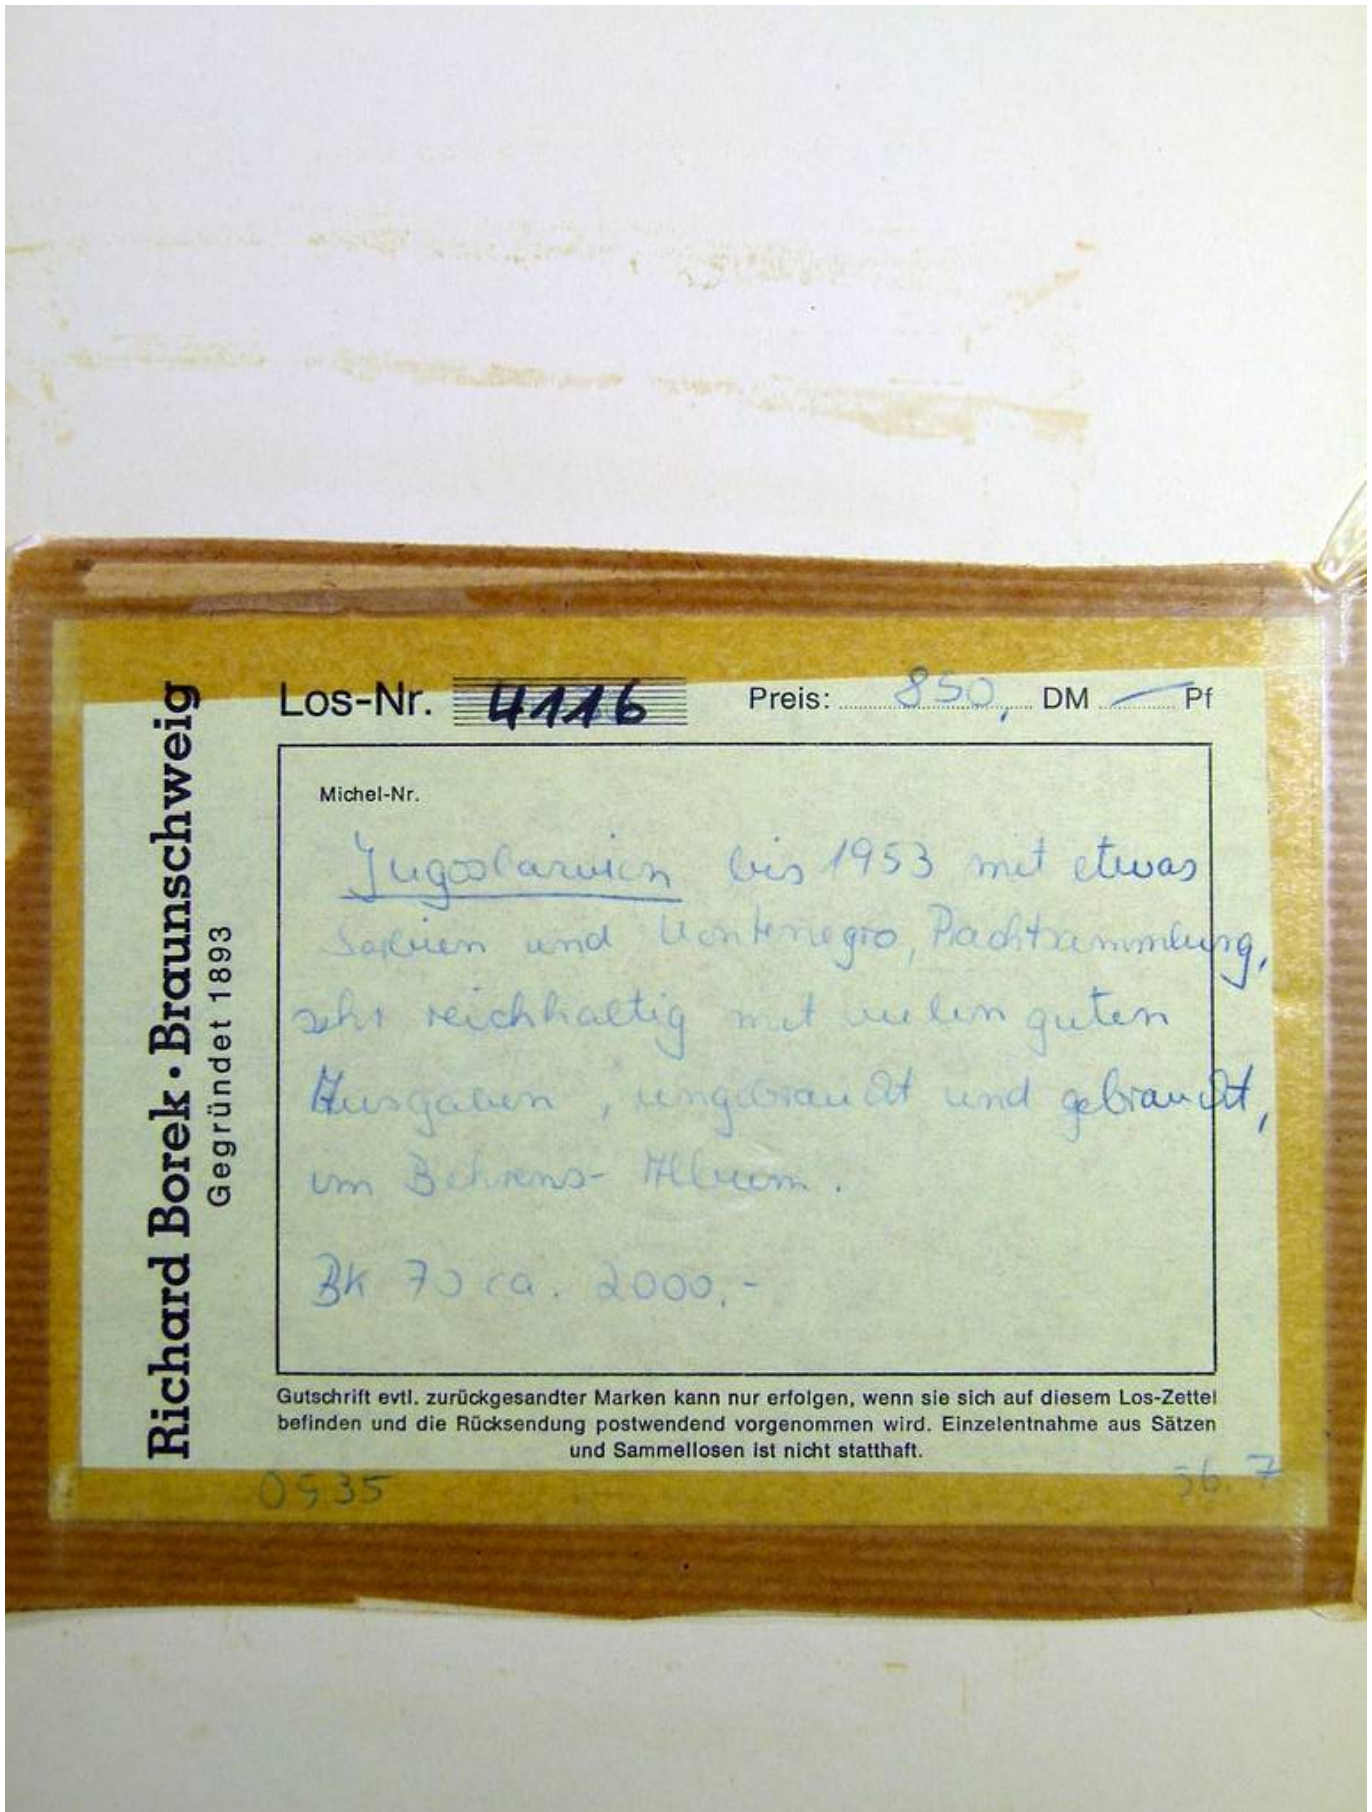 Richard Borek · Braunschweig
Gegründet 1893
Los-Nr. 4116 Preis: 850, DM — Pf
Michel-Nr.
Jugoslawien bis 1953 mit etwas
Serbien und Montenegro, Prachtsammlung,
sehr reichhaltig mit vielen guten
Ausgaben, ungebraucht und gebraucht,
im Behrens-Album.
BK 70 ca. 2000,-
Gutschrift evtl. zurückgesandter Marken kann nur erfolgen, wenn sie sich auf diesem Los-Zettel
befinden und die Rücksendung postwendend vorgenommen wird. Einzelentnahme aus Sätzen
und Sammellosen ist nicht statthaft.
0535 56.7